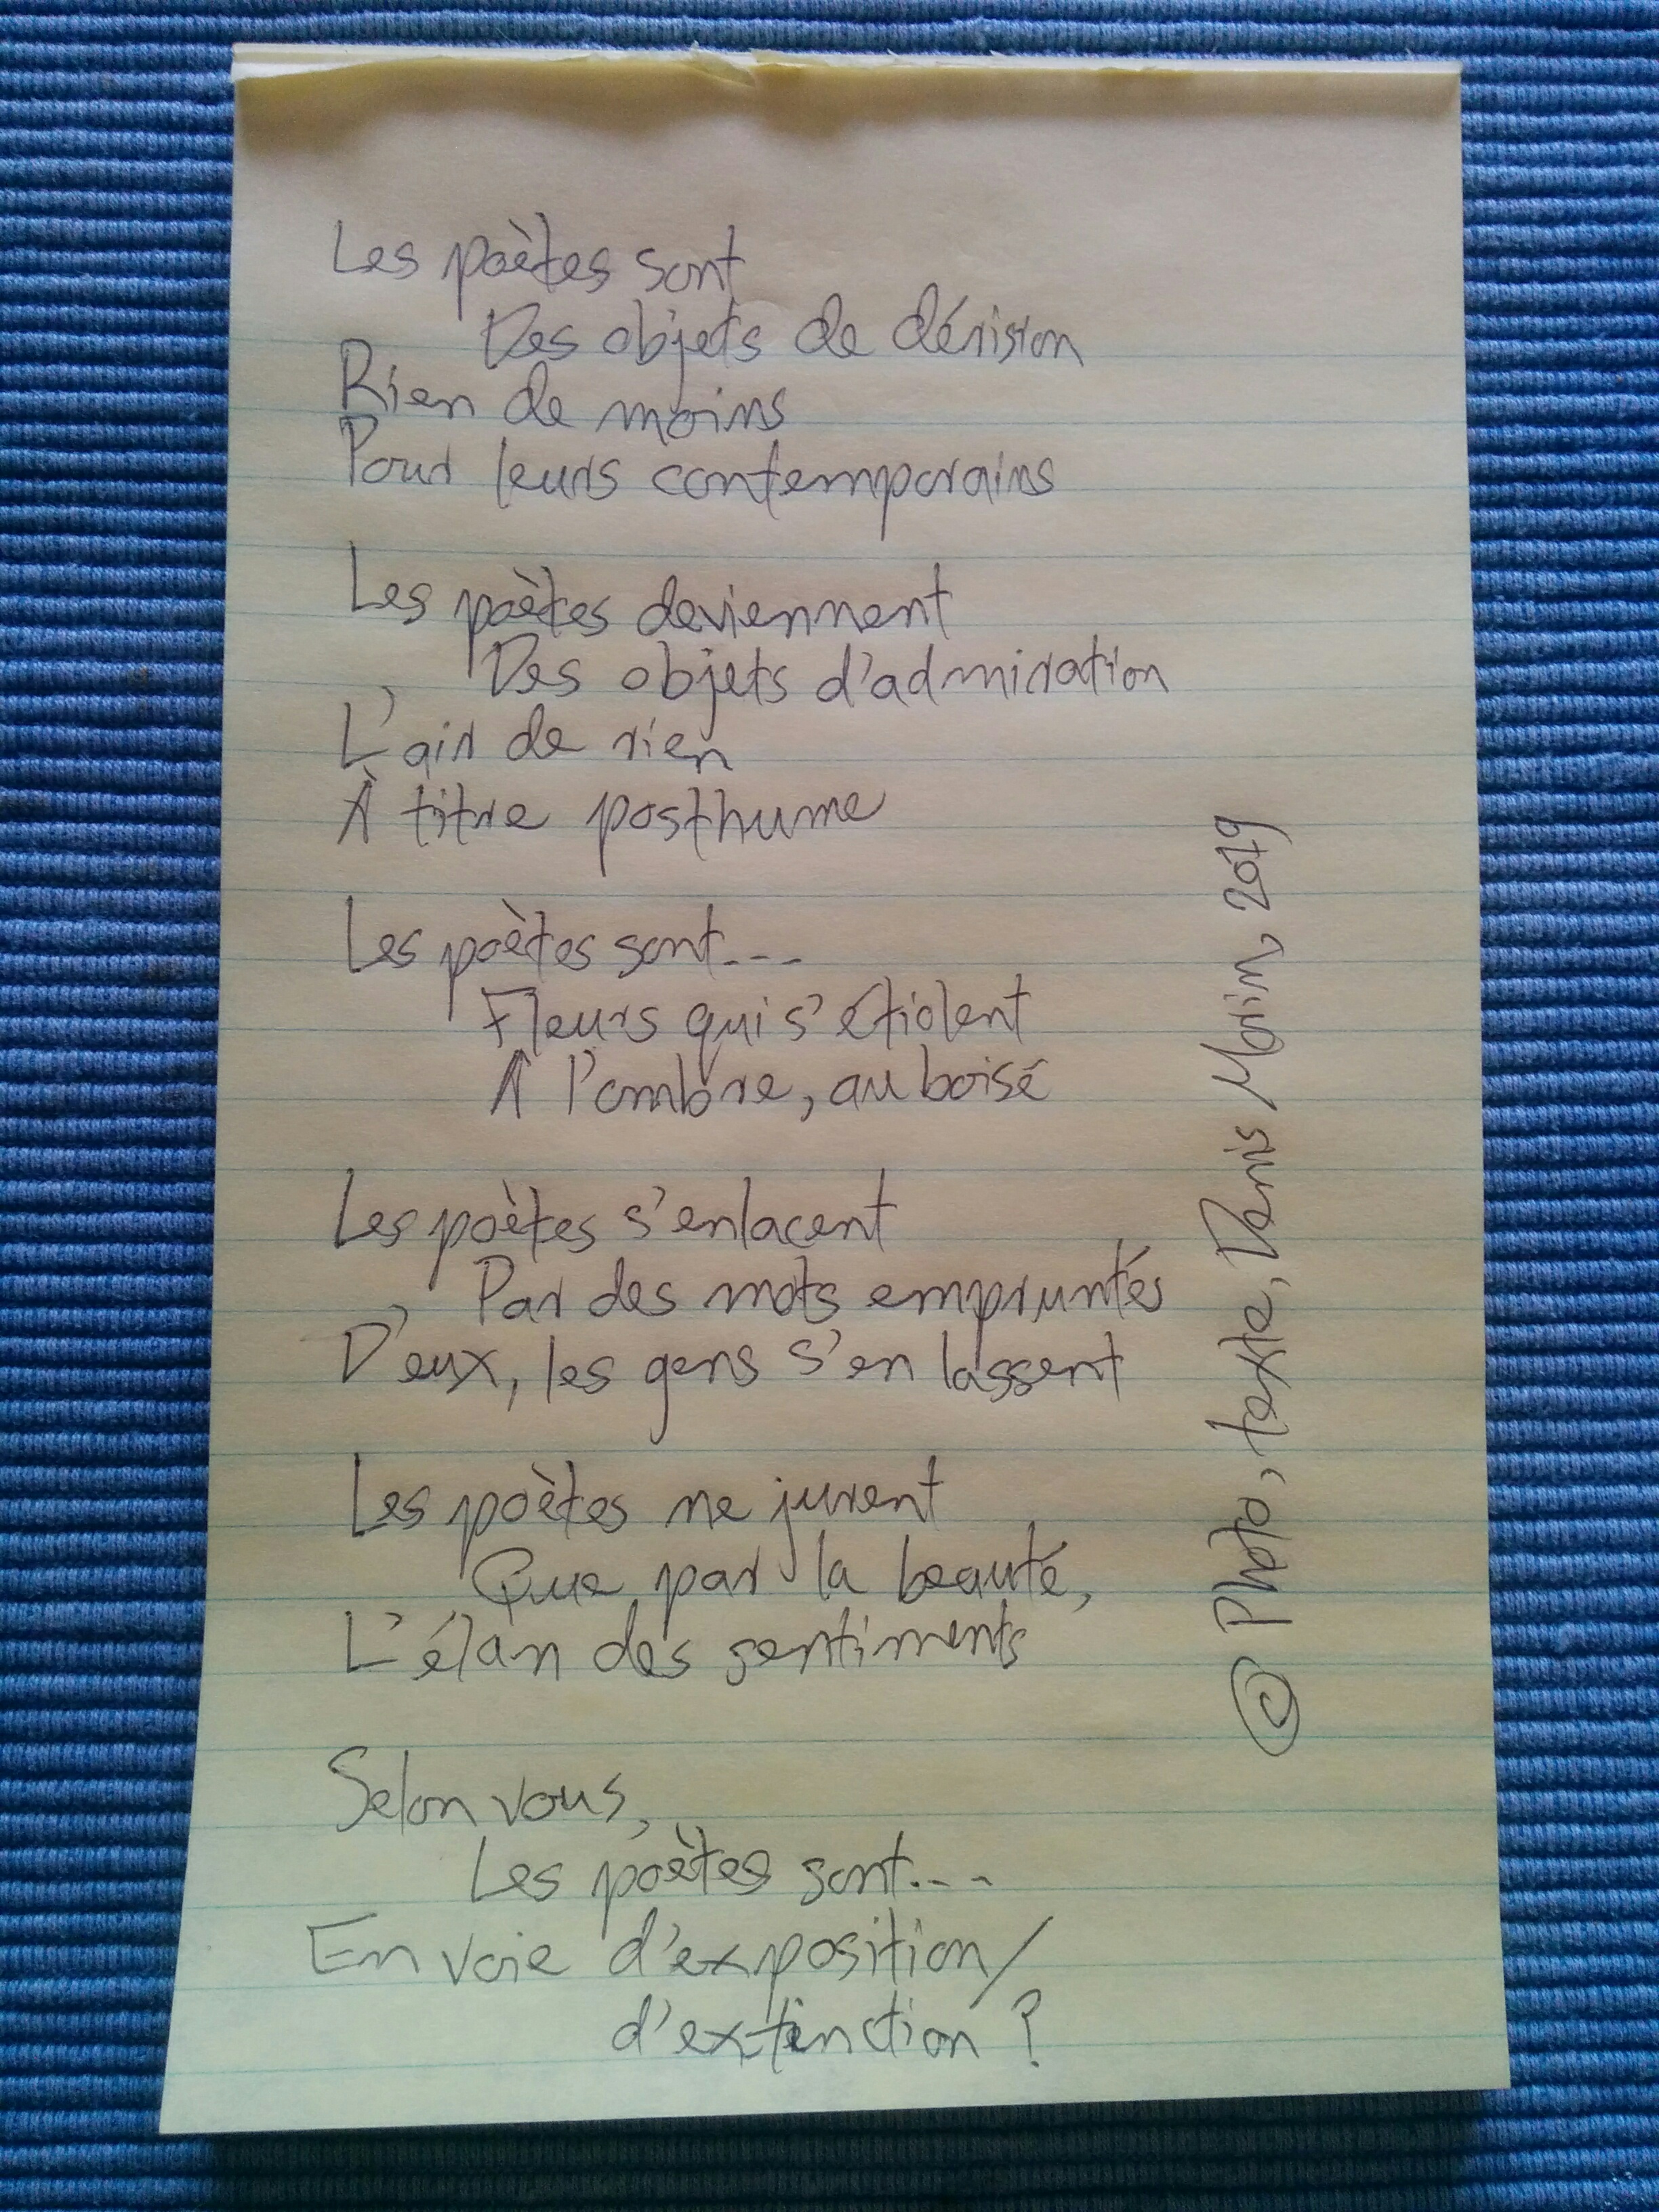 Les poètes sont
Des objets de dérision
Rien de moins
Pour leurs contemporains
Les poètes deviennent
Des objets d'admiration
L'air de rien
À titre posthume
Les poètes sont...
Fleurs qui s'étiolent
À l'ombre, au boisé
Les poètes s'enlacent
Par des mots empruntés
D'eux, les gens s'en lassent
Les poètes ne jurent
Que par la beauté,
L'élan des sentiments
Selon vous,
Les poètes sont...
En voie d'exposition/
d'extinction ?
© Photo, texte, Denis Morin, 2019